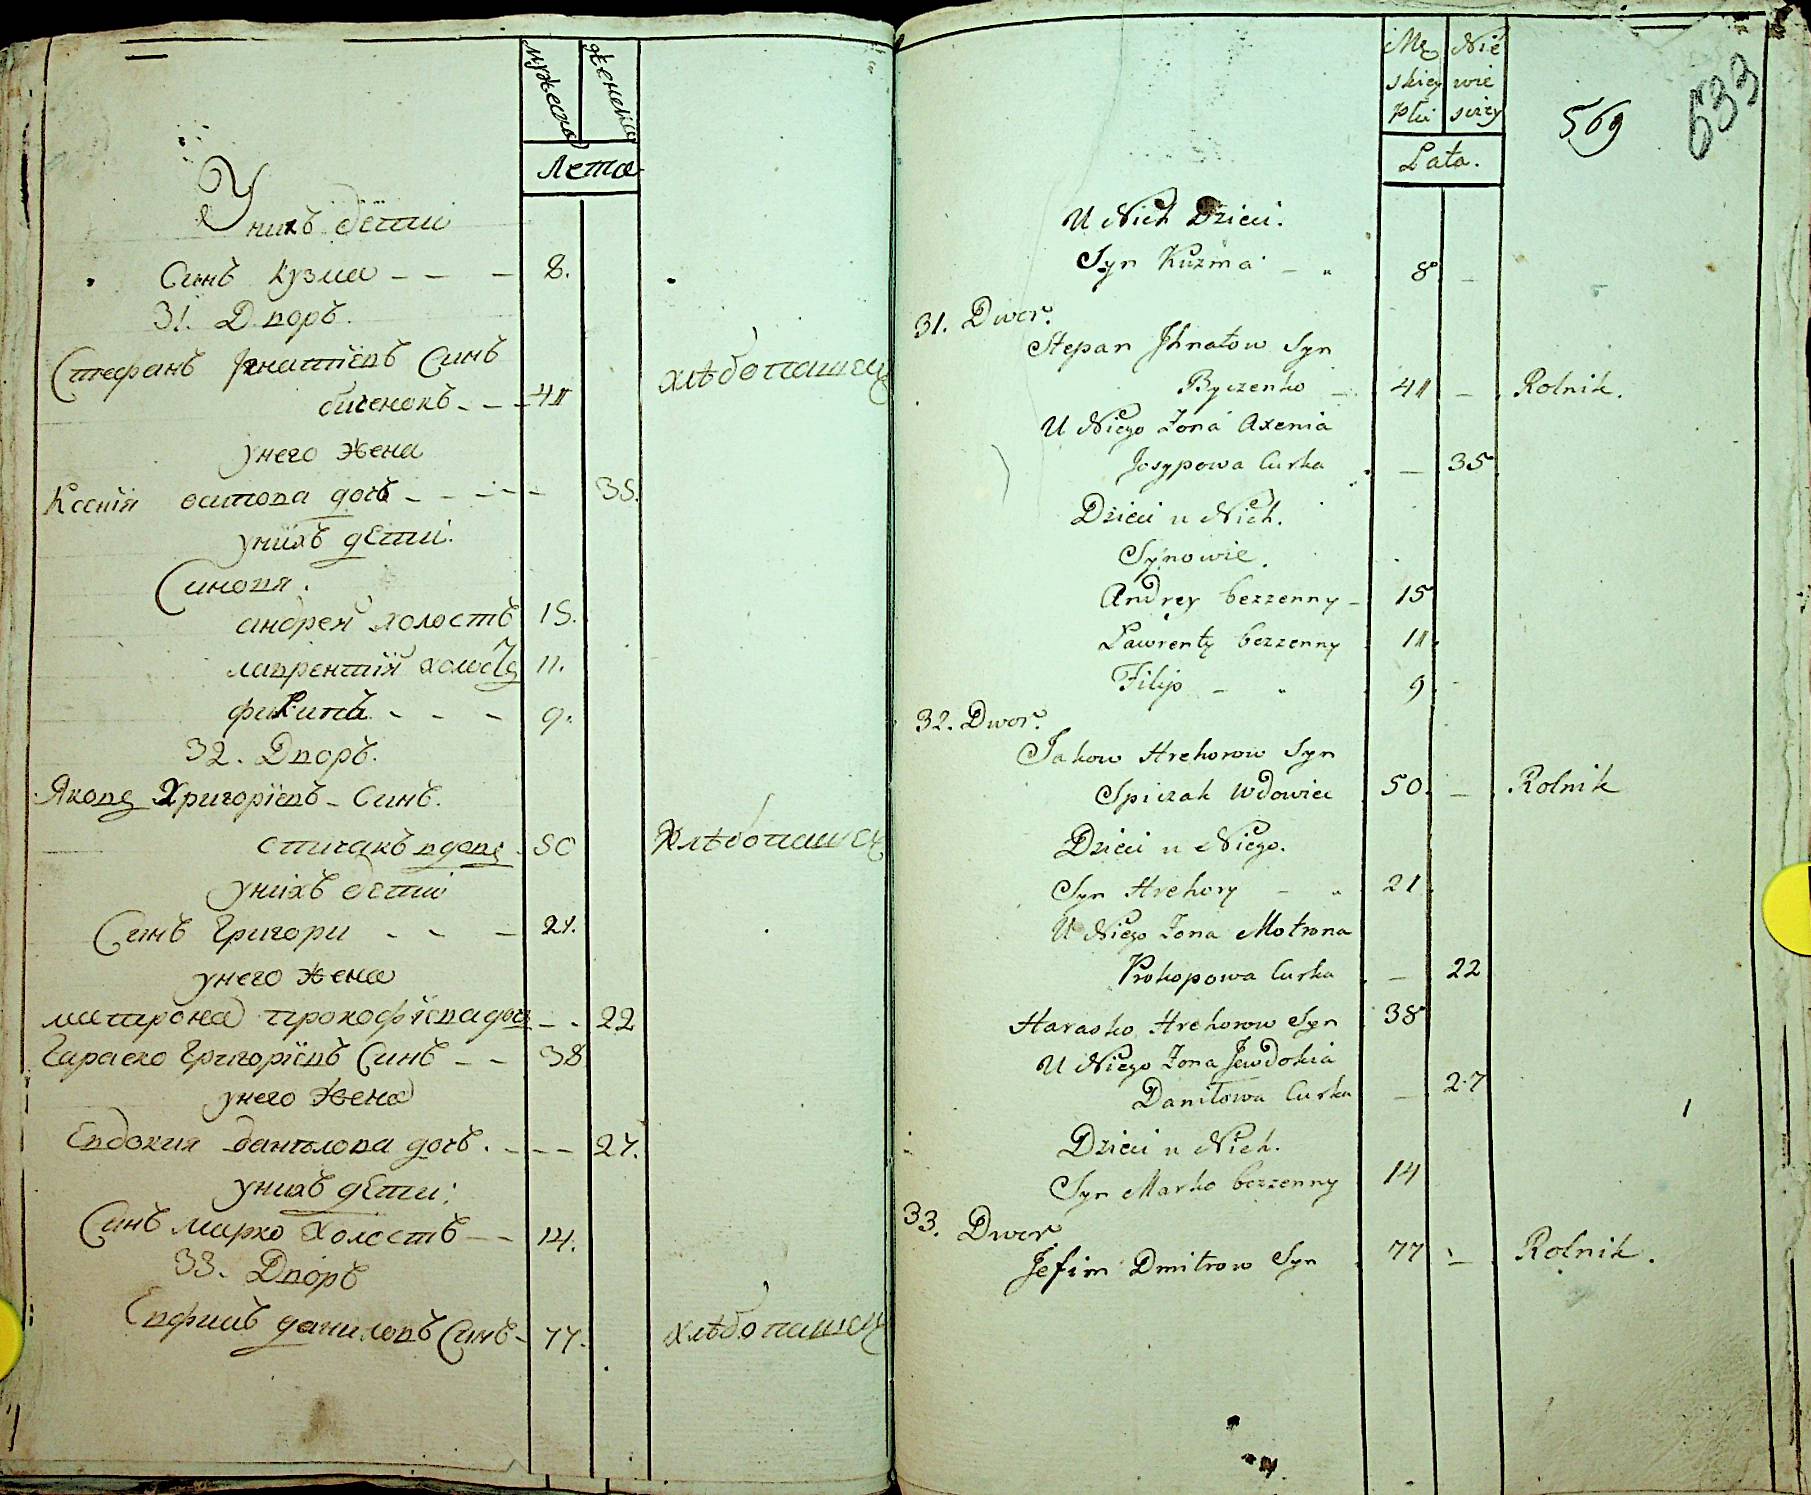 мужеска
женска
Лета
У нихъ дети
Синъ Кузма - - - 8.
31. Дворъ.
Стефанъ Игнатïевъ Синъ
биченокъ - - - 41 хлѣбопашец
унего жена
Ксенïя осипова дочь - - - - 35.
унихъ дети.
Синовя.
андрей холостъ 15.
лаврентïй холостъ 11.
филипъ - - - 9.
32. Дворъ.
Яковъ Григорïевъ - Синъ.
спичакъ вдовецъ 50 Хлѣбопашец
унихъ дети
Синъ Григори - - - 21.
унего жена
матрона прокофïева дочь - - 22
Гараско Григорïевъ Синъ - - 38
унего жена
Евдокия данилова дочь. - - - 27.
унихъ дети:
Синъ марко холостъ - - 14.
33. Дворъ
Евфимъ даниловъ Синъ - 77. хлѣбопашец
Mę Nie
skiey wie
Płci sciey
Lata.
569
633
U Nich Dzieci.
Syn Kuzma - " 8 -
31. Dwor.
Stepan Jhnatow Syn
Byczenko - 41 - Rolnik.
U Niego Zona Axenia
Josypowa Curka - 35
Dzieci u Nich.
Synowie.
Andrey bezzenny - 15
Lawrenty bezzenny 11.
Filip - " 9.
32. Dwor.
Jakow Hrehorow Syn
Spiczak Wdowiec 50. - Rolnik
Dzieci u Niego.
Syn Hrehory - " 21
U Niego Zona Motrona
Prokopowa Curka - 22
Harasko Hrehorow Syn 38
U Niego Zona Jewdokia
Daniłowa Curka - 27
Dzieci u Nich.
Syn Marko bezzenny 14
33. Dwor
Jefim Dmitrow Syn 77 - Rolnik.